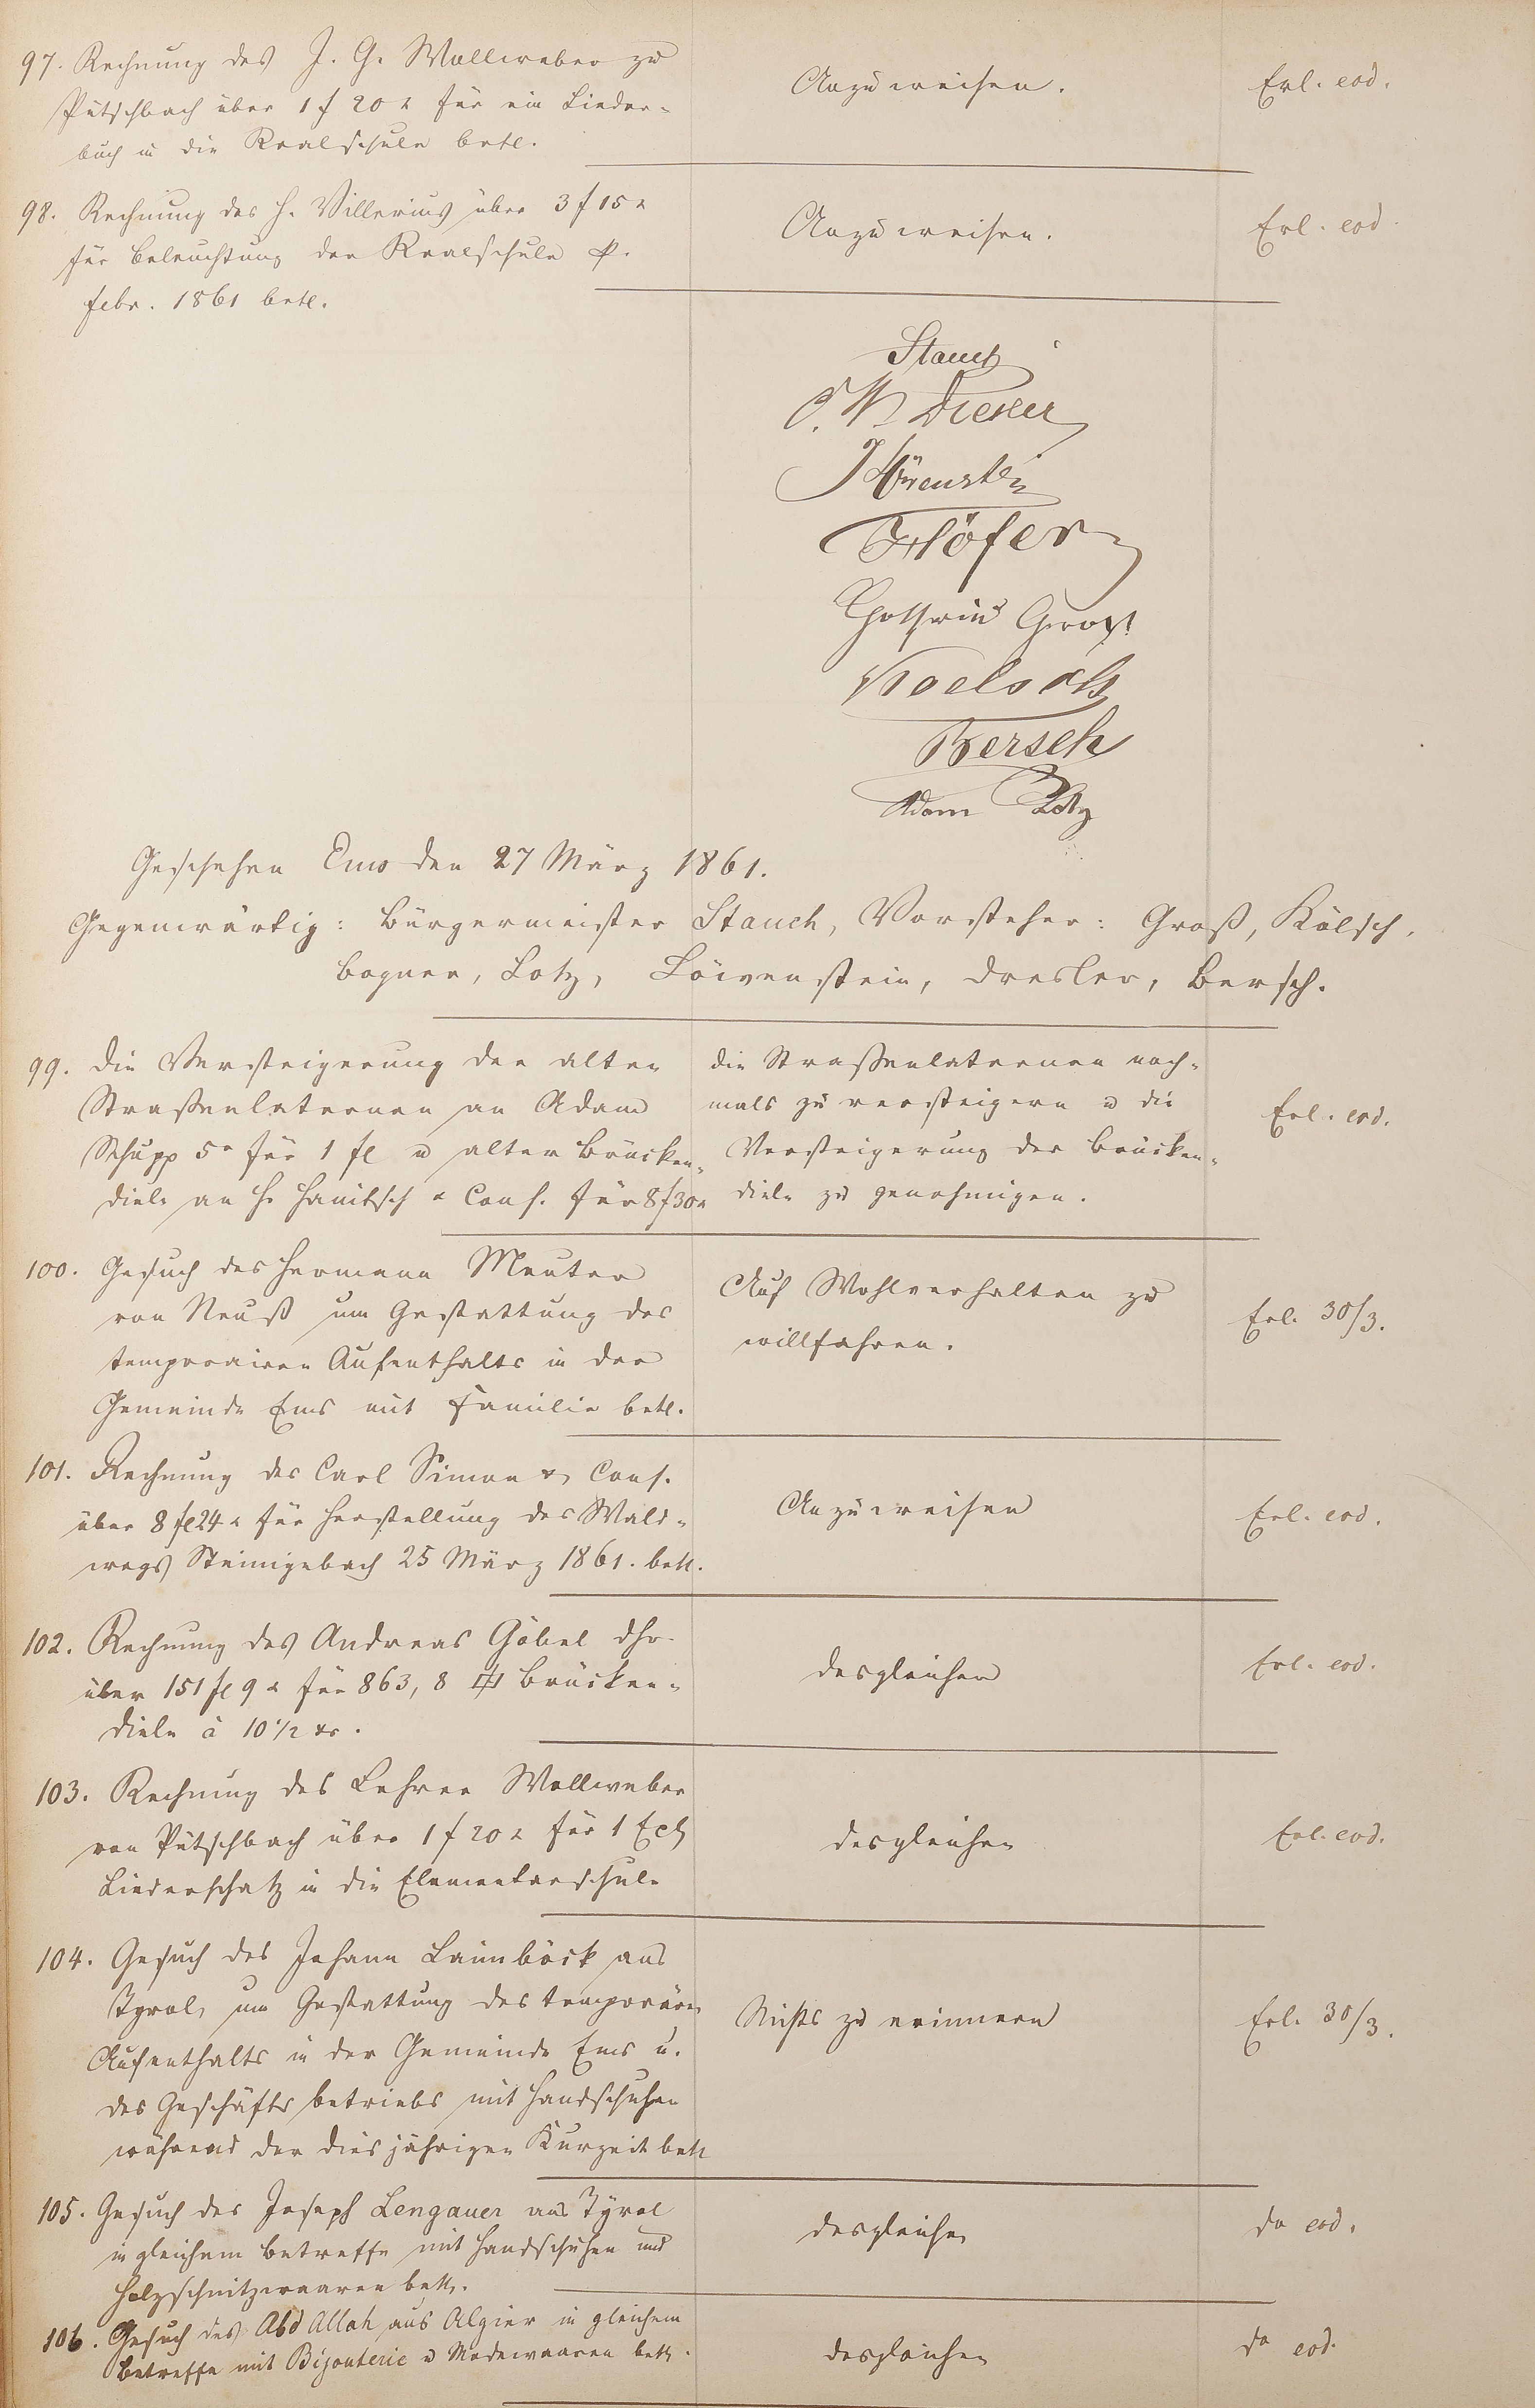 97. Rechnung des J. G. Wollweber zu
Pütschbach über 1 f 20 x für ein Lieder-
buch in die Realschule betr.
Anzuweisen.
Erl. eod.
98. Rechnung des H. Villerius über 3 f 15 x
für Beleuchtung der Realschule p.
Febr. 1861 betr.
Anzuweisen.
Erl. eod.
Stauch
Dresler
Löwenstein
Höfer
Gross
Koelsch
Bersch
Adam Lotz
Geschehen Ems den 27 März 1861.
Gegenwärtig: Bürgermeister Stauch, Vorsteher: Groß, Kölsch,
Bogner, Lotz, Löwenstein, Dresler, Bersch.
99. Die Versteigerung der alten
Straßenlaternen an Adam
Schupp für 1 fl u alter Brücken-
diele an H. Hanitsch & Cons. für 8 f 30 x
die Straßenlaternen noch-
mals zu versteigern u die
Versteigerung der Brücken-
diele zu genehmigen.
Erl. eod.
100. Gesuch des Hermann Meuter
von Neuß um Gestattung des
temporairen Aufenthalts in der
Gemeinde Ems mit Familie betr.
Auf Wohlverhalten zu
willfahren.
Erl. 30/3.
101. Rechnung des Carl Simon & Cons.
über 8 fl 24 x für Herstellung des Wald-
wegs Steinigebach 25 März 1861. betr.
Anzuweisen
Erl. eod.
102. Rechnung des Andreas Göbel dhr.
über 151 fl 9 x für 863,8 Brücken-
diele à 10 1/2 xr.
desgleichen
Erl. eod.
103. Rechnung des Lehrer Wollweber
von Pütschbach über 1 f 20 x für 1 Expl
Liederschatz in die Elementarschule
desgleichen
Erl. eod.
104. Gesuch des Johann Laimböck aus
Tyrol, um Gestattung des temporären
Aufenthalts in der Gemeinde Ems u.
des Geschäftsbetriebs mit Handschuhen
während der diesjährigen Kurzeit betr
Nichts zu erinnern
Erl. 30/3.
105. Gesuch des Joseph Lengauer aus Tyrol
in gleichem Betreffe mit Handschuhen und
Holzschnitzwaaren betr.
desgleichen
do eod.
106. Gesuch des Abd Allah aus Algier in gleichem
Betreffe mit Bijouterie u Modewaaren betr.
desgleichen
do eod.